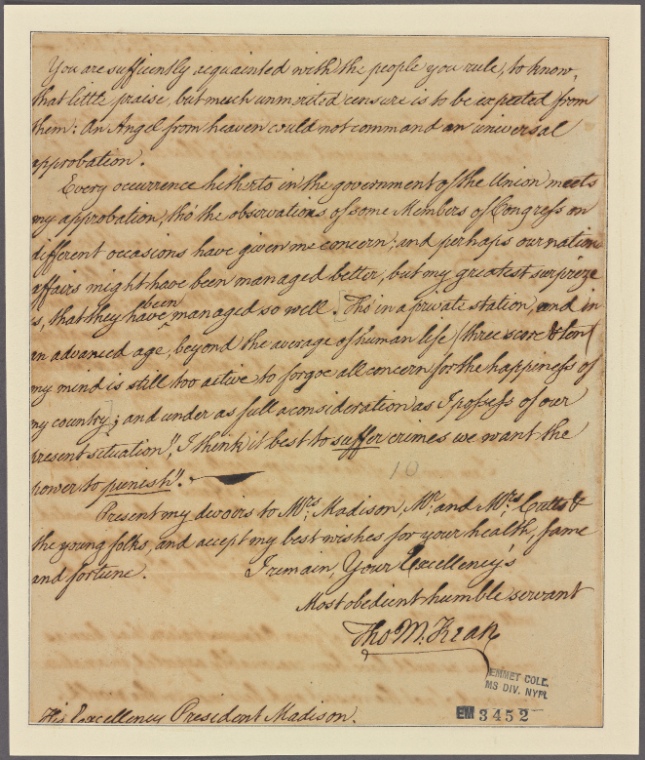 You are sufficiently acquainted with the people you rule, to know,
that little praise, but much unmerited censure is to be expected from
them: An Angel from heaven could not command an universal
approbation.
Every occurrence hitherto in the government of the Union meets
my approbation, tho' the observations of some Members of Congress on
different occasions have given me concern; and perhaps our nation
affairs might have been managed better, but my greatest surprize
is, that they have been managed so well. [Tho' in a private station, and in
an advanced age, beyond the average of human life (three score & ten)
my mind is still too active to forgoe all concern for the happiness of
my country]; and under as full a consideration as I possess of our
present situation, "I think it best to suffer crimes we want the
power to punish".
10
Present my devoirs to Mrs. Madison, Mr. and Mrs. Cutts &
the young folks, and accept my best wishes for your health, fame
and fortune. I remain, Your Excellency's
Most obedient humble servant
Tho M:Kean
EMMET COLL.
MS DIV. NYPL
EM 3452
His Excellency President Madison.